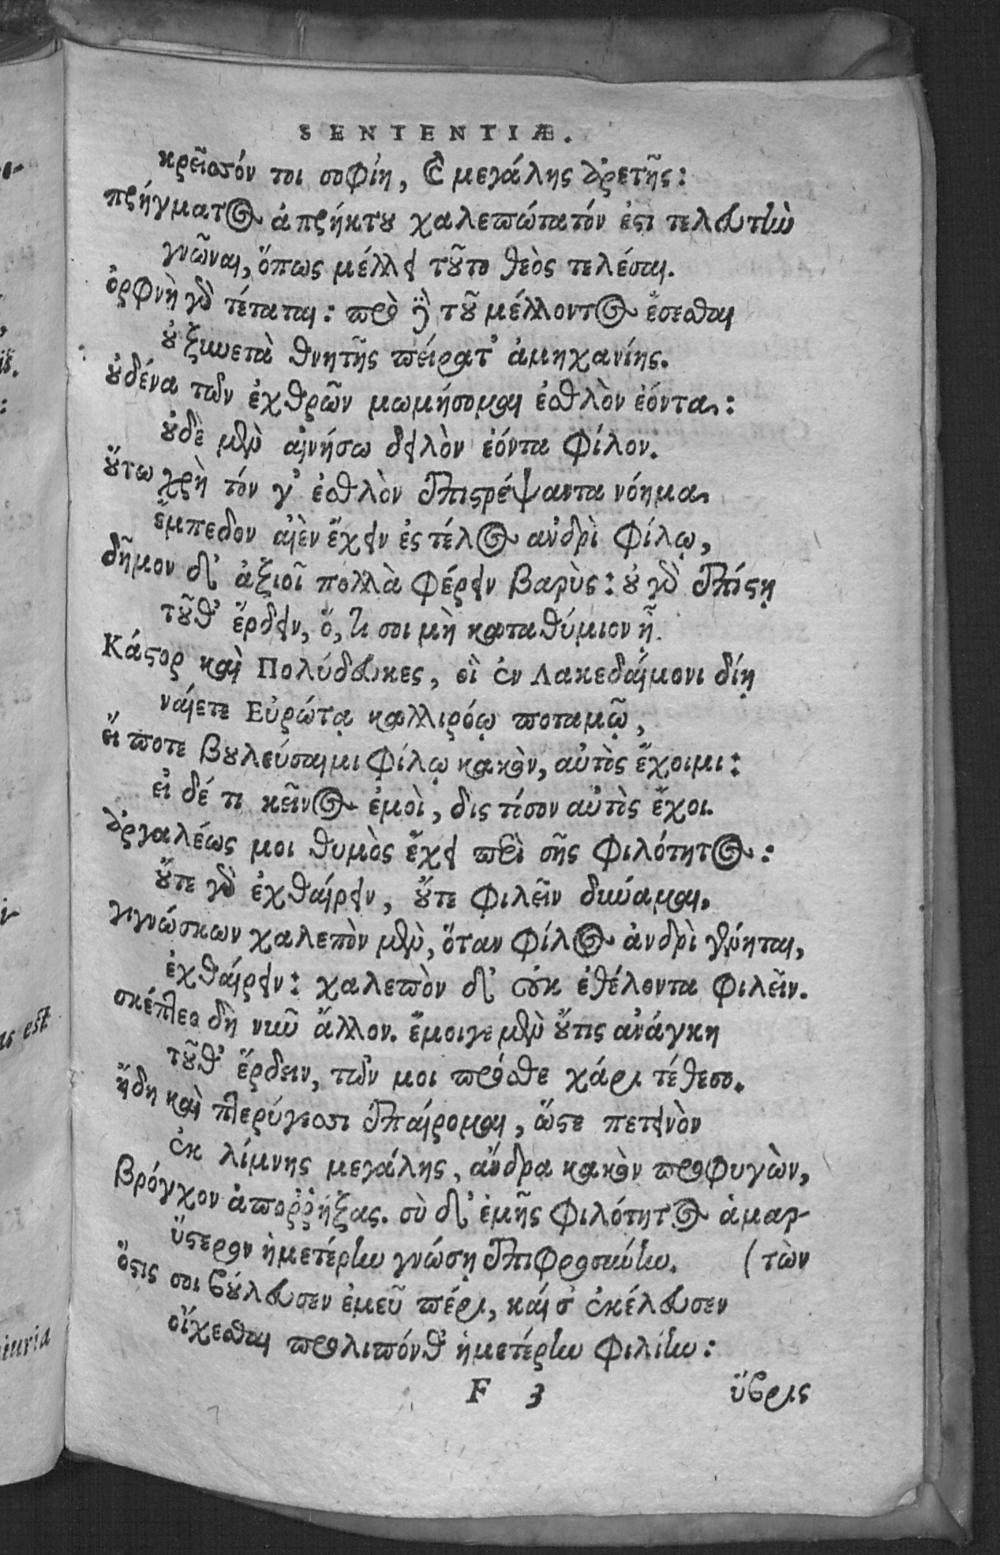 SENTENTIÆ.
κρεῖσσόν τοι σοφίη, καὶ μεγάλης ἀρετῆς:
πρήγματος ἀπρήκτου χαλεπώτατόν ἐστι τελευτὴν
γνῶναι, ὅπως μέλλει τοῦτο θεὸς τελέσαι.
ὀρφνὴ γὰρ τέταται: πρὸ δὲ τοῦ μέλλοντος ἔσεσθαι
οὐ ξυνετὰ θνητῆς πείρατ' ἀμηχανίης.
οὐδένα τῶν ἐχθρῶν μωμήσομαι ἐσθλὸν ἐόντα:
οὐδὲ μὲν αἰνήσω δειλὸν ἐόντα φίλον.
οὕτω χρὴ τόν γ' ἐσθλὸν ἐπιστρέψαντα νόημα
ἔμπεδον αἰὲν ἔχειν ἐς τέλος ἀνδρὶ φίλῳ,
δῆμον δ' ἀξιοῖ πολλὰ φέρειν βαρὺς: οὐ γὰρ ἐπίστῃ
τοῦθ' ἔρδειν, ὅ, τι σοι μὴ καταθύμιον ᾖ.
Κάστορ καὶ Πολύδευκες, οἳ ἐν Λακεδαίμονι δίῃ
ναίετε Εὐρώτᾳ καλλιρόῳ ποταμῷ,
εἴ ποτε βουλεύσαιμι φίλῳ κακὸν, αὐτὸς ἔχοιμι:
εἰ δέ τι κεῖνος ἐμοὶ, δὶς τόσον αὐτὸς ἔχοι.
ἀργαλέως μοι θυμὸς ἔχει περὶ σῆς φιλότητος:
οὔτε γὰρ ἐχθαίρειν, οὔτε φιλεῖν δύναμαι,
γιγνώσκων χαλεπὸν μὲν, ὅταν φίλος ἀνδρὶ γένηται,
ἐχθαίρειν: χαλεπὸν δ' οὐκ ἐθέλοντα φιλεῖν.
σκέπτεο δὴ νῦν ἄλλον. ἔμοιγε μὲν οὔτις ἀνάγκη
τοῦθ' ἔρδειν, τῶν μοι πρόσθε χάριν τέθεσο.
ἤδη καὶ πτερύγεσσι ἐπαίρομαι, ὥστε πετεινὸν
ἐκ λίμνης μεγάλης, ἄνδρα κακὸν προφυγὼν,
βρόγχον ἀποῤῥήξας. σὺ δ' ἐμῆς φιλότητος ἁμαρ-
ὕστερον ἡμετέρην γνώσῃ ἐπιφροσύνην. (τὼν
ὅστις σοι βούλευσεν ἐμεῦ πέρι, καί σ' ἐκέλευσεν
οἴχεσθαι προλιπόνθ' ἡμετέρην φιλίην:
F 3 ὕβρις
est
iuria